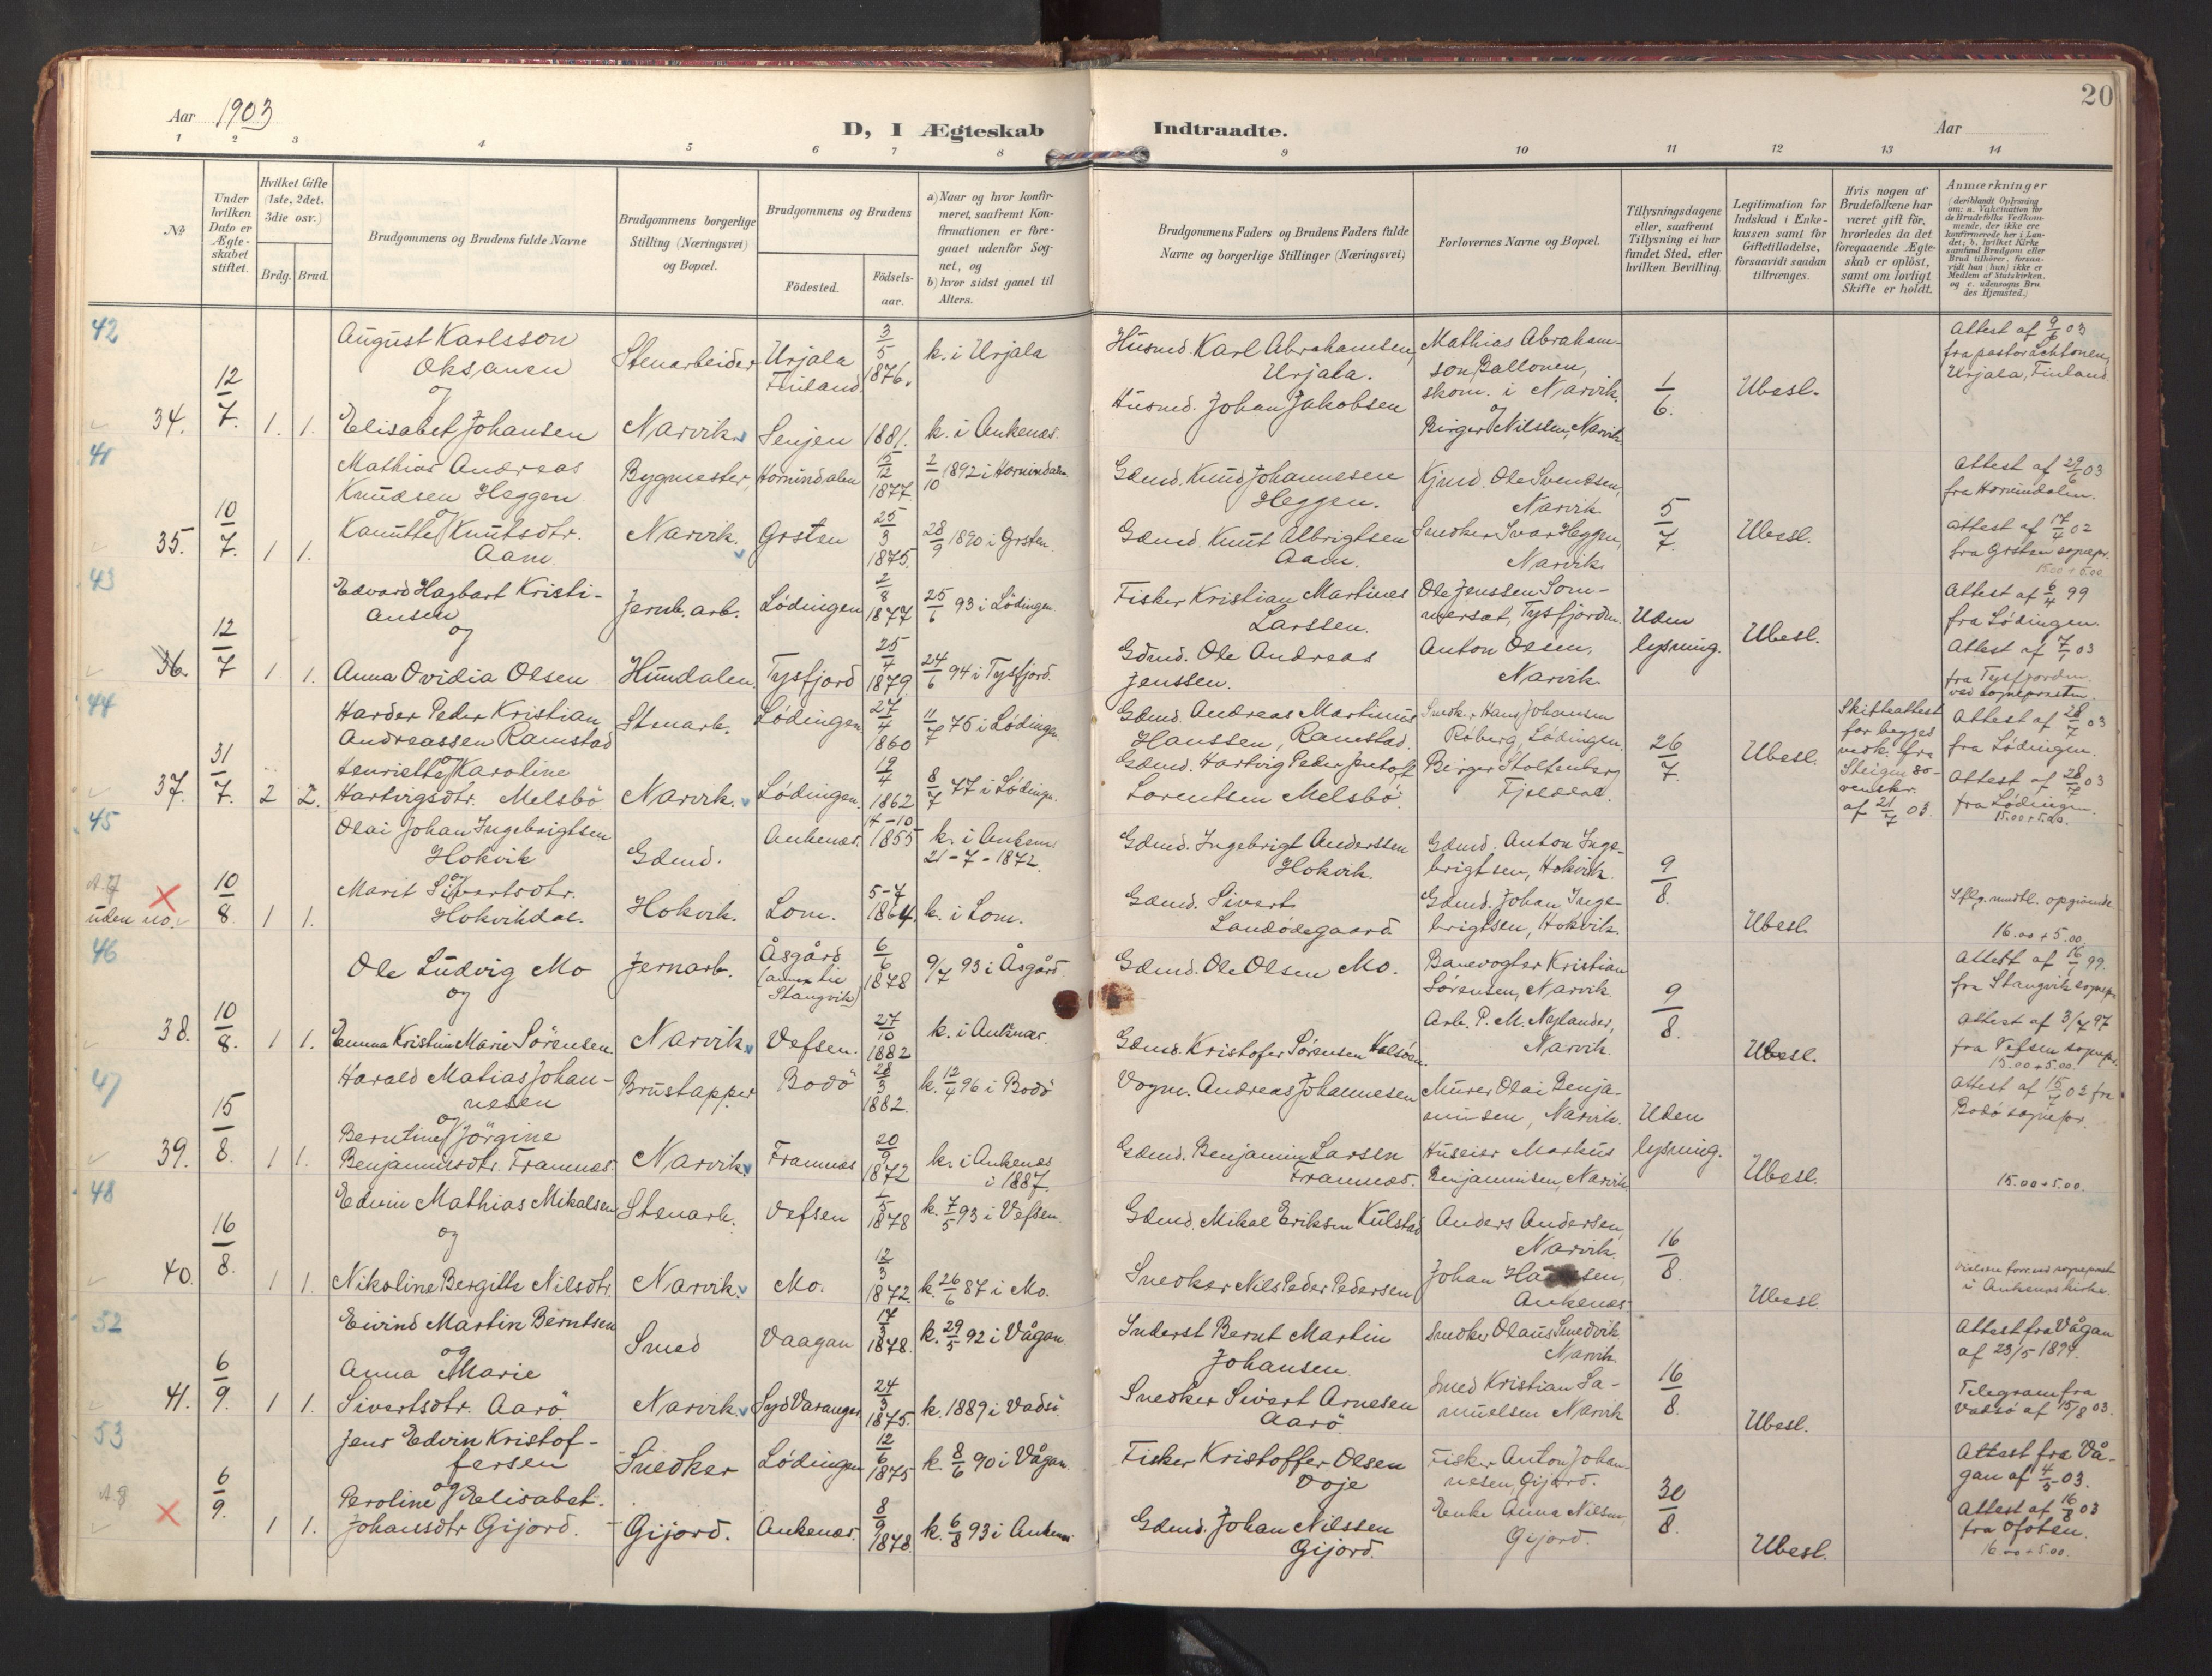 20
Aar 1903
D, I Ægteskab Indtraadte.
Aar
1 2 3 4 5 6 7 8 9 10 11 12 13 14
No
Under hvilken Dato er Ægteskabet stiftet.
Hvilket Gifte (1ste, 2det, 3die osv.)
Brdg. Brud.
Brudgommens og Brudens fulde Navne
Brudgommens borgerlige Stilling (Næringsvei) og Bopæl.
Brudgommens og Brudens
Födested. Födsels-aar.
a) Naar og hvor konfirmeret, saafremt Konfirmationen er foregaaet udenfor Sognet, og
b) hvor sidst gaaet til Alters.
Brudgommens Faders og Brudens Faders fulde Navne og borgerlige Stillinger (Næringsvei)
Forlovernes Navne og Bopæl.
Tillysningsdagene eller, saafremt Tillysning ei har fundet Sted, efter hvilken Bevilling.
Legitimation for Indskud i Enkekassen samt for Giftetilladelse, forsaavidt saadan tiltrænges.
Hvis nogen af Brudefolkene har været gift för, hvorledes da det foregaaende Ægteskab er oplöst, samt om lovligt Skifte er holdt.
Anmærkninger
42
34. 12/7. 1. 1.
August Karlsson
Oksanen
og
Elisabet Johansen
Stenarbeider
Narvik.
Urjala
Finland.
Senjen
3/5 1876.
1881.
k. i Urjala
k. i Ankenæs.
Husmd. Karl Abrahamsen,
Urjala.
Husmd. Johan Jakobsen
Mathias Abraham-
son Ballonen,
skom. i Narvik.
og
Birger Nilssen, Narvik
1/6.
Ubesl.
Attest af 9/6 03
fra pastor
Urjala, Finland
41
35. 10/7. 1 1.
Mathias Andreas
Knudsen Heggen
og
Kanutte Knutsdtr.
Aam
Bygmester,
Narvik.
Hornindalen
Grsten
15/12 1877.
25/3 1875.
2/10 1892 i Hornindalen
28/9 1890 i Grsten
Gdmd. Knud Johannesen
Heggen.
Gdmd. Knut Albrigtsen
Aam.
Kjmd. Ole Sventsen,
Narvik
Snedker Ivar Heggen,
Narvik
5/7.
Ubesl.
Attest af 29/6 03
fra Hornindalen.
attest af 17/4 02
fra Grsten sognepr.
15.00 + 5.00
43
36. 12/7 1 1.
Edvard Hagbart Kristi-
ansen
og
Anna Ovidia Olsen
Jernb. arb.
Hundalen.
Lödingen
Tysfjord
2/8 1877
25/7 1879.
25/6 93 i Lödingen.
24/6 94 i Tysfjord.
Fisker Kristian Martines
Larssen.
Gdmd. Ole Andreas
Jenssen.
Ole Jenssen Som-
mersæt, Tysfjorden.
Anton Olsen,
Narvik
Uden
lysning.
Ubesl.
Attest af 6/4 99
fra Lödingen.
Attest af 7/1 03
fra Tysfjorden
ved sognepresten.
44
37. 31/7. 2 2.
Harder Peder Kristian
Andreassen Ramstad
og
Henriette Karoline
Hartvigsdtr. Melsbö
Stenarb.
Narvik.
Lödingen
Lödingen.
27/4 1860
19/4 1862
11/7 75 i Lödingen
8/7 77 i Lödingen.
Gdmd. Andreas Martinus
Hanssen, Ramstad.
Gdmd. Hartvig Peder Jentoft
Lorentsen Melsbö.
Snedker Hans Johansen
Röberg, Lödingen.
Birger Stoltenberg
Fjeldal.
26/7.
Ubesl.
Skifteattest
for begges
vedk. fra
Steigen so-
renskr.
af 21/7 03.
Attest af 28/7 03
fra Lödingen.
Attest af 28/7 03
fra Lödingen.
15.00+5.00.
45
uden no. 10/8. 1 1.
Olai Johan Ingebrigtsen
Hokvik
og
Marit Sivertsdtr.
Hokvikdal.
Gdmd.
Hokvik.
Ankenæs.
Lom.
14-10 1855
5-7 1864.
k. i Ankenæs
21-7-1872.
k. i Lom.
Gdmd. Ingebrigt Anderssen
Hokvik.
Gdmd. Sivert
Landödegaard
Gdmd. Anton Inge-
brigtsen, Hokvik.
Gdmd. Johan Inge-
brigtsen, Hokvik.
9/8.
Ubesl.
Iflg. mundtl. opgivende
16.00 + 5.00.
46
38. 10/8. 1 1.
Ole Ludvig Mo
og
Emma Kristine Marie Sörensen
Jernarb.
Narvik.
Åsgård
(annex til
Stangvik)
Vefsen.
6/6 1878
27/10 1882
9/7 93 i Åsgård.
k. i Ankenæs.
Gdmd. Ole Olsen Mo.
Gdmd. Kristofer Sörensen
Banevogter Kristian
Sörensen, Narvik.
Arb. P. M. Nylander,
Narvik.
9/8.
Ubesl.
Attest af 16/1 99.
fra Stangvik sognepr.
Attest af 3/7 97
fra Vefsen sognepr.
15.00+5.00.
47
39. 15/8. 1 1.
Harald Matias Johan-
nesen
og
Berntine Jörgine
Benjaminsdtr. Framnæs
Brustapper
Narvik
Bodö
Framnæs
28/3 1882.
20/9 1872
k. 12/4 96 i Bodö
k. i Ankenæs
i 1887.
Vogm. Andreas Johannesen
Gdmd. Benjamin Larsen
Framnæs.
Murer Olai Benja-
minsen, Narvik.
Huseier Markus
Benjaminsen, Narvik
Uden
lysning.
Ubesl.
Attest af 15/7 03 fra
Bodö sognepr.
15.00+5.00.
48
40. 16/8. 1 1.
Edvin Mathias Mikalsen
og
Nikoline Bergitte Nilsdtr.
Stenarb.
Narvik.
Vefsen
Mo.
1/5 1878
12/3 1872.
k. 7/5 93 i Vefsen.
k. 26/6 87 i Mo.
Gdmd. Mikal Eriksen Kulstad
Snedker Nils Peder Pedersen
Anders Andersen,
Narvik.
Johan Hansen,
Ankenæs.
16/8.
Ubesl.
i Ankenæs kirke.
52
41. 6/9. 1 1.
Eivind Martin Berntsen
og
Anna Marie
Sivertsdtr. Aarö
Smed
Narvik.
Vaagan
Syd Varanger
17/3 1878.
24/3 1875.
k. 29/5 92 i Vågan.
k. 1889 i Vadsö.
Inderst Bernt Martin
Johansen.
Snedker Sivert Arnesen
Aarö.
Snedker Olaus Snedvik,
Narvik.
Smed Kristian Sa-
muelsen Narvik
16/8.
Ubesl.
Attest fra Vågan
af 23/5 1899.
Telegram fra
Vadsö af 15/8 03.
53
A. 8
6/9. 1 1.
Jens Edvin Kristof-
fersen
og
Peroline Elisabet
Johansdtr Gijord.
Snedker
Gijord.
Lödingen
Ankenæs.
12/6 1875
8/9 1878.
k. 8/6 90 i Vågan.
k. 6/8 93 i Ankenæs
Fisker Kristoffer Olsen
Voje
Gdmd. Johan Nilssen
Gijord.
Fisker Anton Johan-
nesen, Gijord.
Enke Anna Nilsen
Gijord.
30/8.
Ubesl.
Attest fra Vå-
gan af 4/5 03.
Attest af 16/8 03
fra Ofoten.
16.00+5.00.